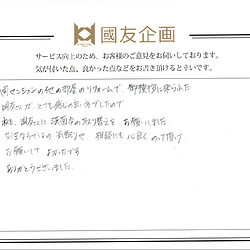 國友企画
サービス向上のため、お客様のご意見をお伺いしております。
気が付いた点、良かった点などをお書き頂けると幸いです。
同マンションの他の部屋のリフォームで、御挨拶に来られた
国友さんが、とても感じの良い方でしたので
私も、国友さんに 洗面台の取り替えを お願いしました
な気配りや 相談にも 心良く のって頂け
お願いして よかったです
ありがとうございました。